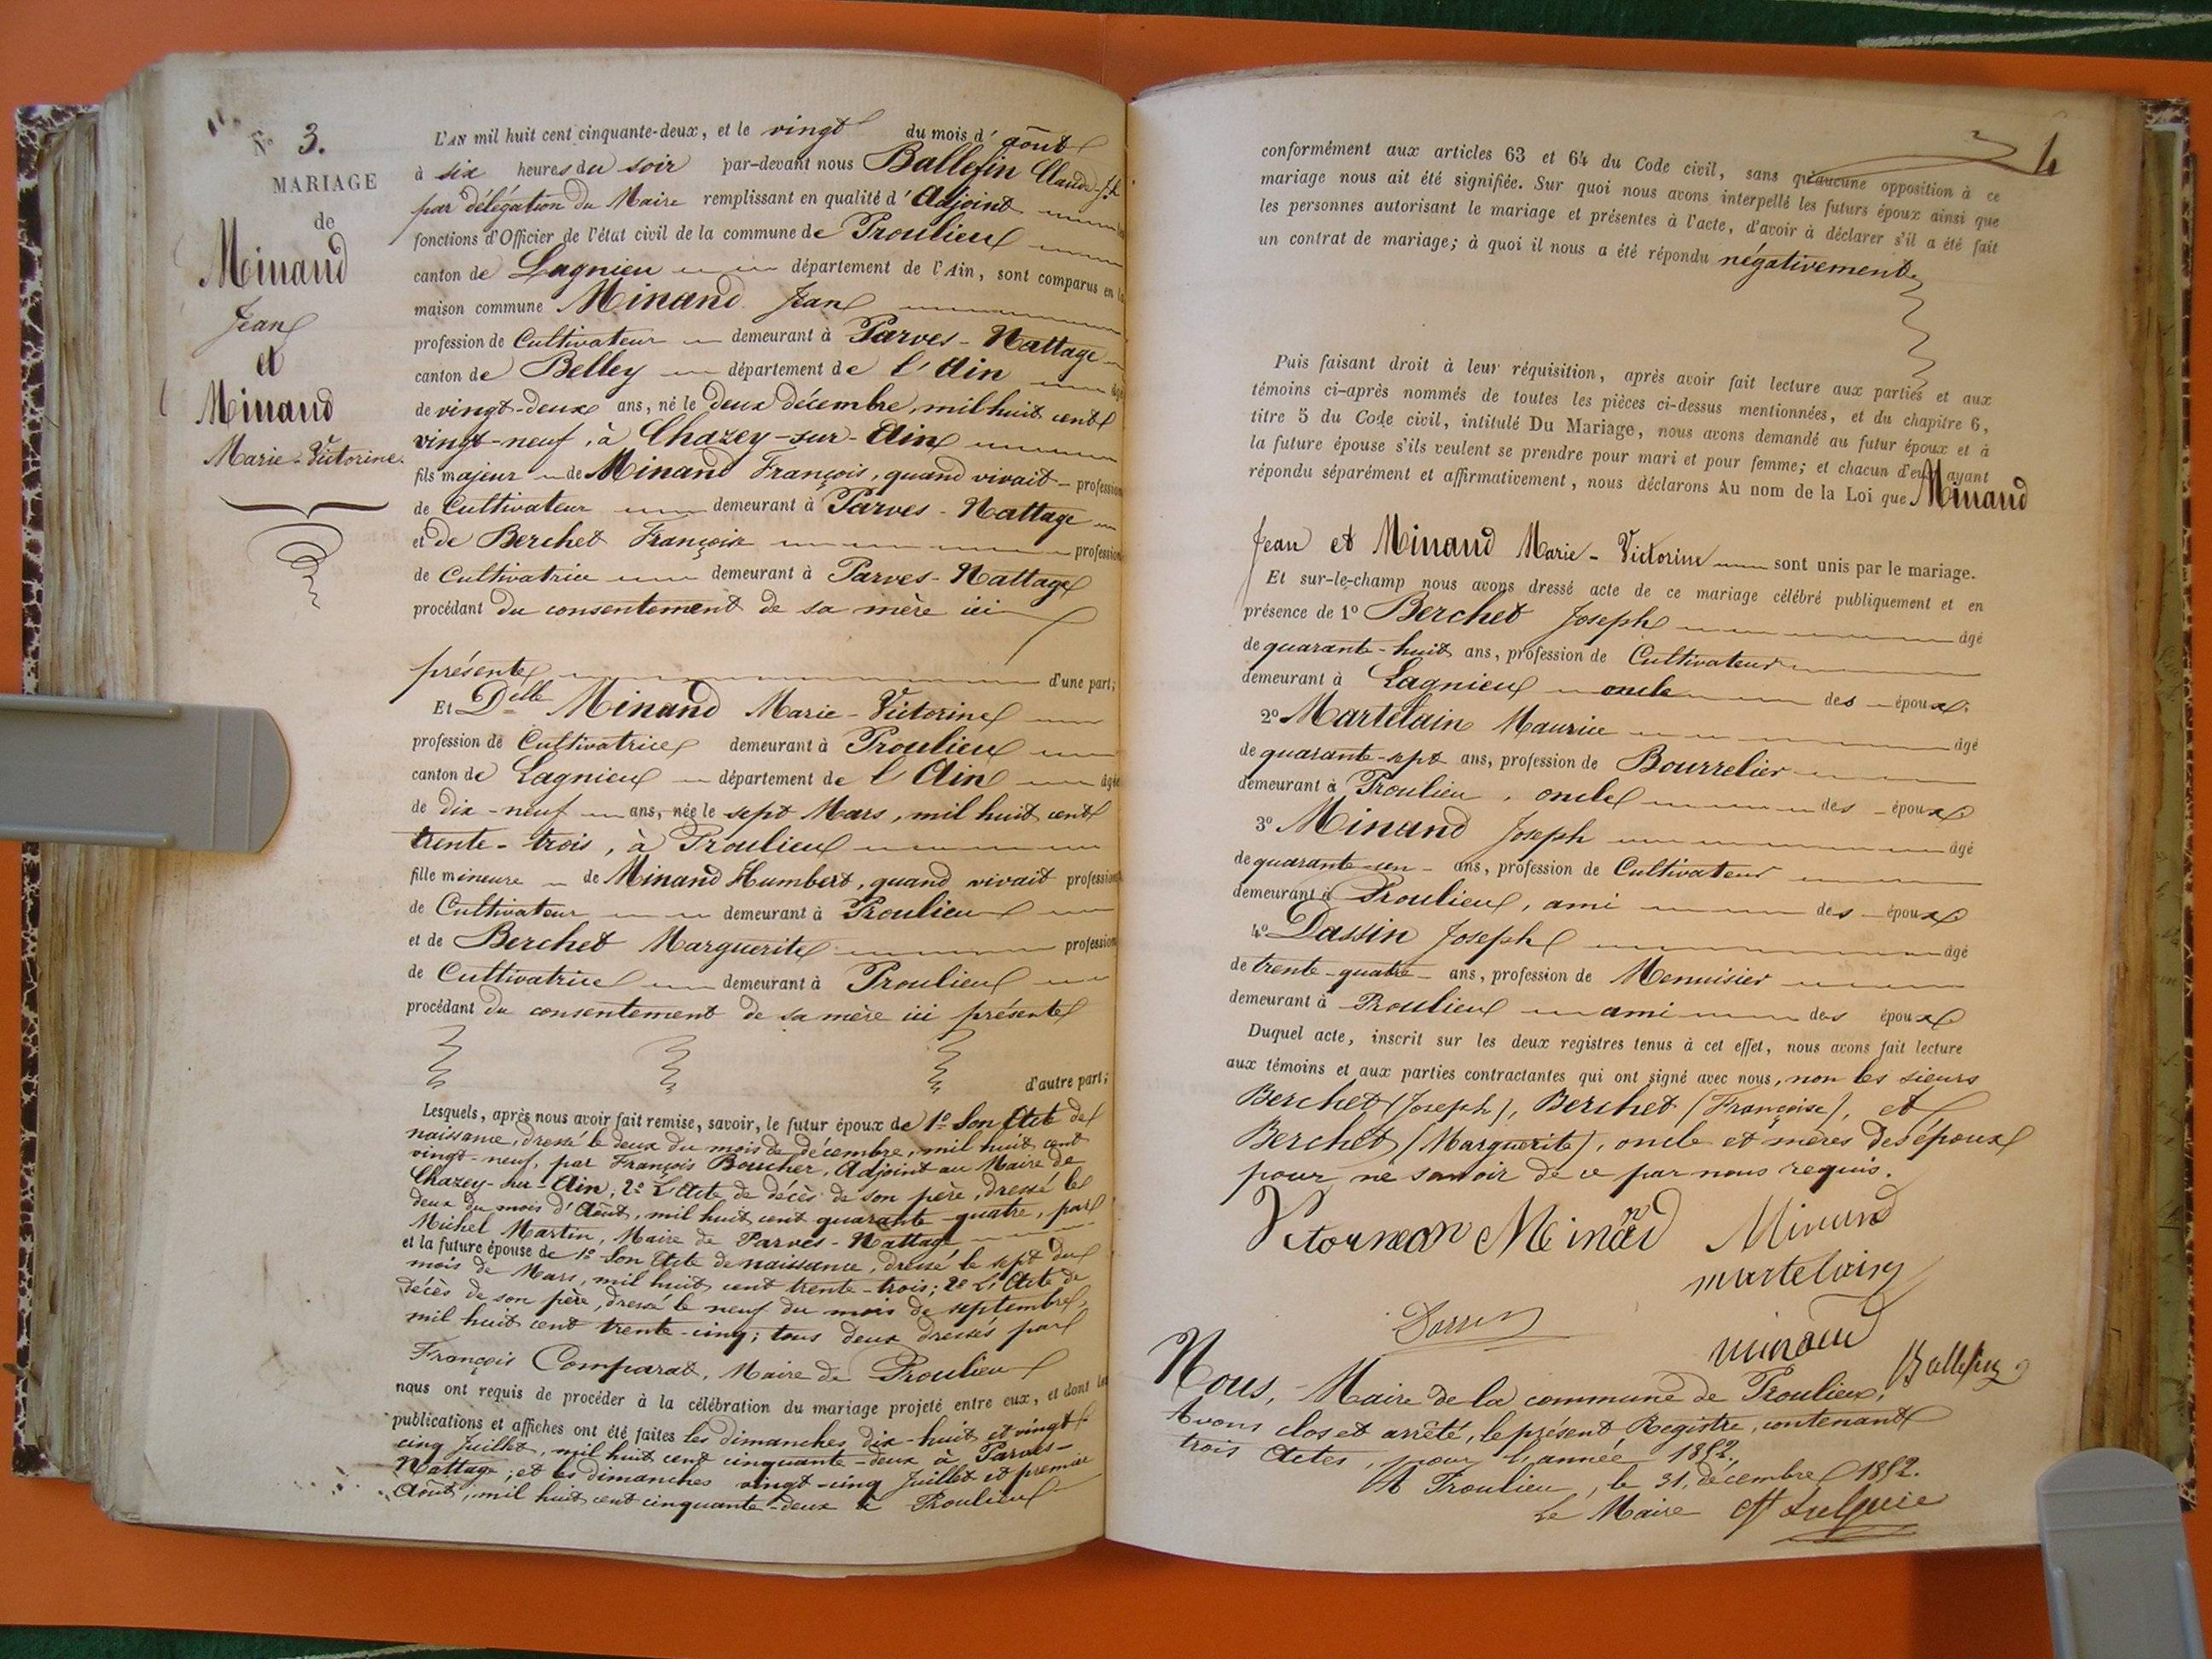 N° 3.
MARIAGE
de
Minand
Jean
et
Minand
Marie-Victorine.
L'AN mil huit cent cinquante-deux, et le vingt du mois d'août
à six heures du soir par-devant nous Ballefin Claude
par délégation du Maire remplissant en qualité d'Adjoint
fonctions d'Officier de l'état civil de la commune de Proulieu
canton de Lagnieu département de l'Ain, sont comparus en la
maison commune Minand Jean
profession de Cultivateur demeurant à Parves-Nattage
canton de Belley département de l'Ain âgé
de vingt-deux ans, né le deux décembre, mil huit cent
vingt-neuf, à Chazey-sur-Ain
fils majeur de Minand François, quand vivait profession
de Cultivateur demeurant à Parves-Nattage
et de Berchet Françoise profession
de Cultivatrice demeurant à Parves-Nattage
procédant du consentement de sa mère ici
présente d'une part;
Et Delle Minand Marie-Victorine
profession de Cultivatrice demeurant à Proulieu
canton de Lagnieu département de l'Ain âgée
de dix-neuf ans, née le sept Mars, mil huit cent
trente-trois, à Proulieu
fille mineure de Minand Humbert, quand vivait profession
de Cultivateur demeurant à Proulieu
et de Berchet Marguerite profession
de Cultivatrice demeurant à Proulieu
procédant du consentement de sa mère ici présente
d'autre part;
Lesquels, après nous avoir fait remise, savoir, le futur époux de 1° Son Acte de
naissance, dressé le deux du mois de décembre, mil huit cent
vingt-neuf, par François Boucher, Adjoint au Maire de
Chazey-sur-Ain, 2° L'Acte de décès de son père, dressé le
deux du mois d'Août, mil huit cent quarante-quatre, par
Michel Martin, Maire de Parves-Nattage
et la future épouse de 1° Son Acte de naissance, dressé le sept du
mois de Mars, mil huit cent trente-trois; 2° L'Acte de
décès de son père, dressé le neuf du mois de septembre,
mil huit cent trente-cinq; tous deux dressés par
François Comparat, Maire de Proulieu
nous ont requis de procéder à la célébration du mariage projeté entre eux, et dont les
publications et affiches ont été faites les dimanches dix-huit et vingt-
cinq Juillet, mil huit cent cinquante-deux à Parves-
Nattage; et les dimanches vingt-cinq Juillet et premier
Août, mil huit cent cinquante-deux à Proulieu
4
conformément aux articles 63 et 64 du Code civil, sans qu'aucune opposition à ce
mariage nous ait été signifiée. Sur quoi nous avons interpellé les futurs époux ainsi que
les personnes autorisant le mariage et présentes à l'acte, d'avoir à déclarer s'il a été fait
un contrat de mariage; à quoi il nous a été répondu négativement.
Puis faisant droit à leur réquisition, après avoir fait lecture aux parties et aux
témoins ci-après nommés de toutes les pièces ci-dessus mentionnées, et du chapitre 6,
titre 5 du Code civil, intitulé Du Mariage, nous avons demandé au futur époux et à
la future épouse s'ils veulent se prendre pour mari et pour femme; et chacun d'eux ayant
répondu séparément et affirmativement, nous déclarons Au nom de la Loi que Minand
Jean et Minand Marie-Victorine sont unis par le mariage.
Et sur-le-champ nous avons dressé acte de ce mariage célébré publiquement et en
présence de 1° Berchet Joseph âgé
de quarante-huit ans, profession de Cultivateur
demeurant à Lagnieu oncle des époux.
2° Martelain Maurice âgé
de quarante-sept ans, profession de Bourrelier
demeurant à Proulieu, oncle des époux
3° Minand Joseph âgé
de quarante-un ans, profession de Cultivateur
demeurant à Proulieu, ami des époux
4° Dassin Joseph âgé
de trente-quatre ans, profession de Menuisier
demeurant à Proulieu ami des époux
Duquel acte, inscrit sur les deux registres tenus à cet effet, nous avons fait lecture
aux témoins et aux parties contractantes qui ont signé avec nous, non les sieurs
Berchet (Joseph), Berchet (Françoise), et
Berchet (Marguerite), oncle et mères des époux
pour ne savoir de ce par nous requis.
Minand Minand
martelain
minand
Ballefin
Nous, Maire de la commune de Proulieu,
Avons clos et arrêté, le présent Registre, contenant
trois Actes, pour l'année 1852.
A Proulieu, le 31, décembre 1852.
Le Maire